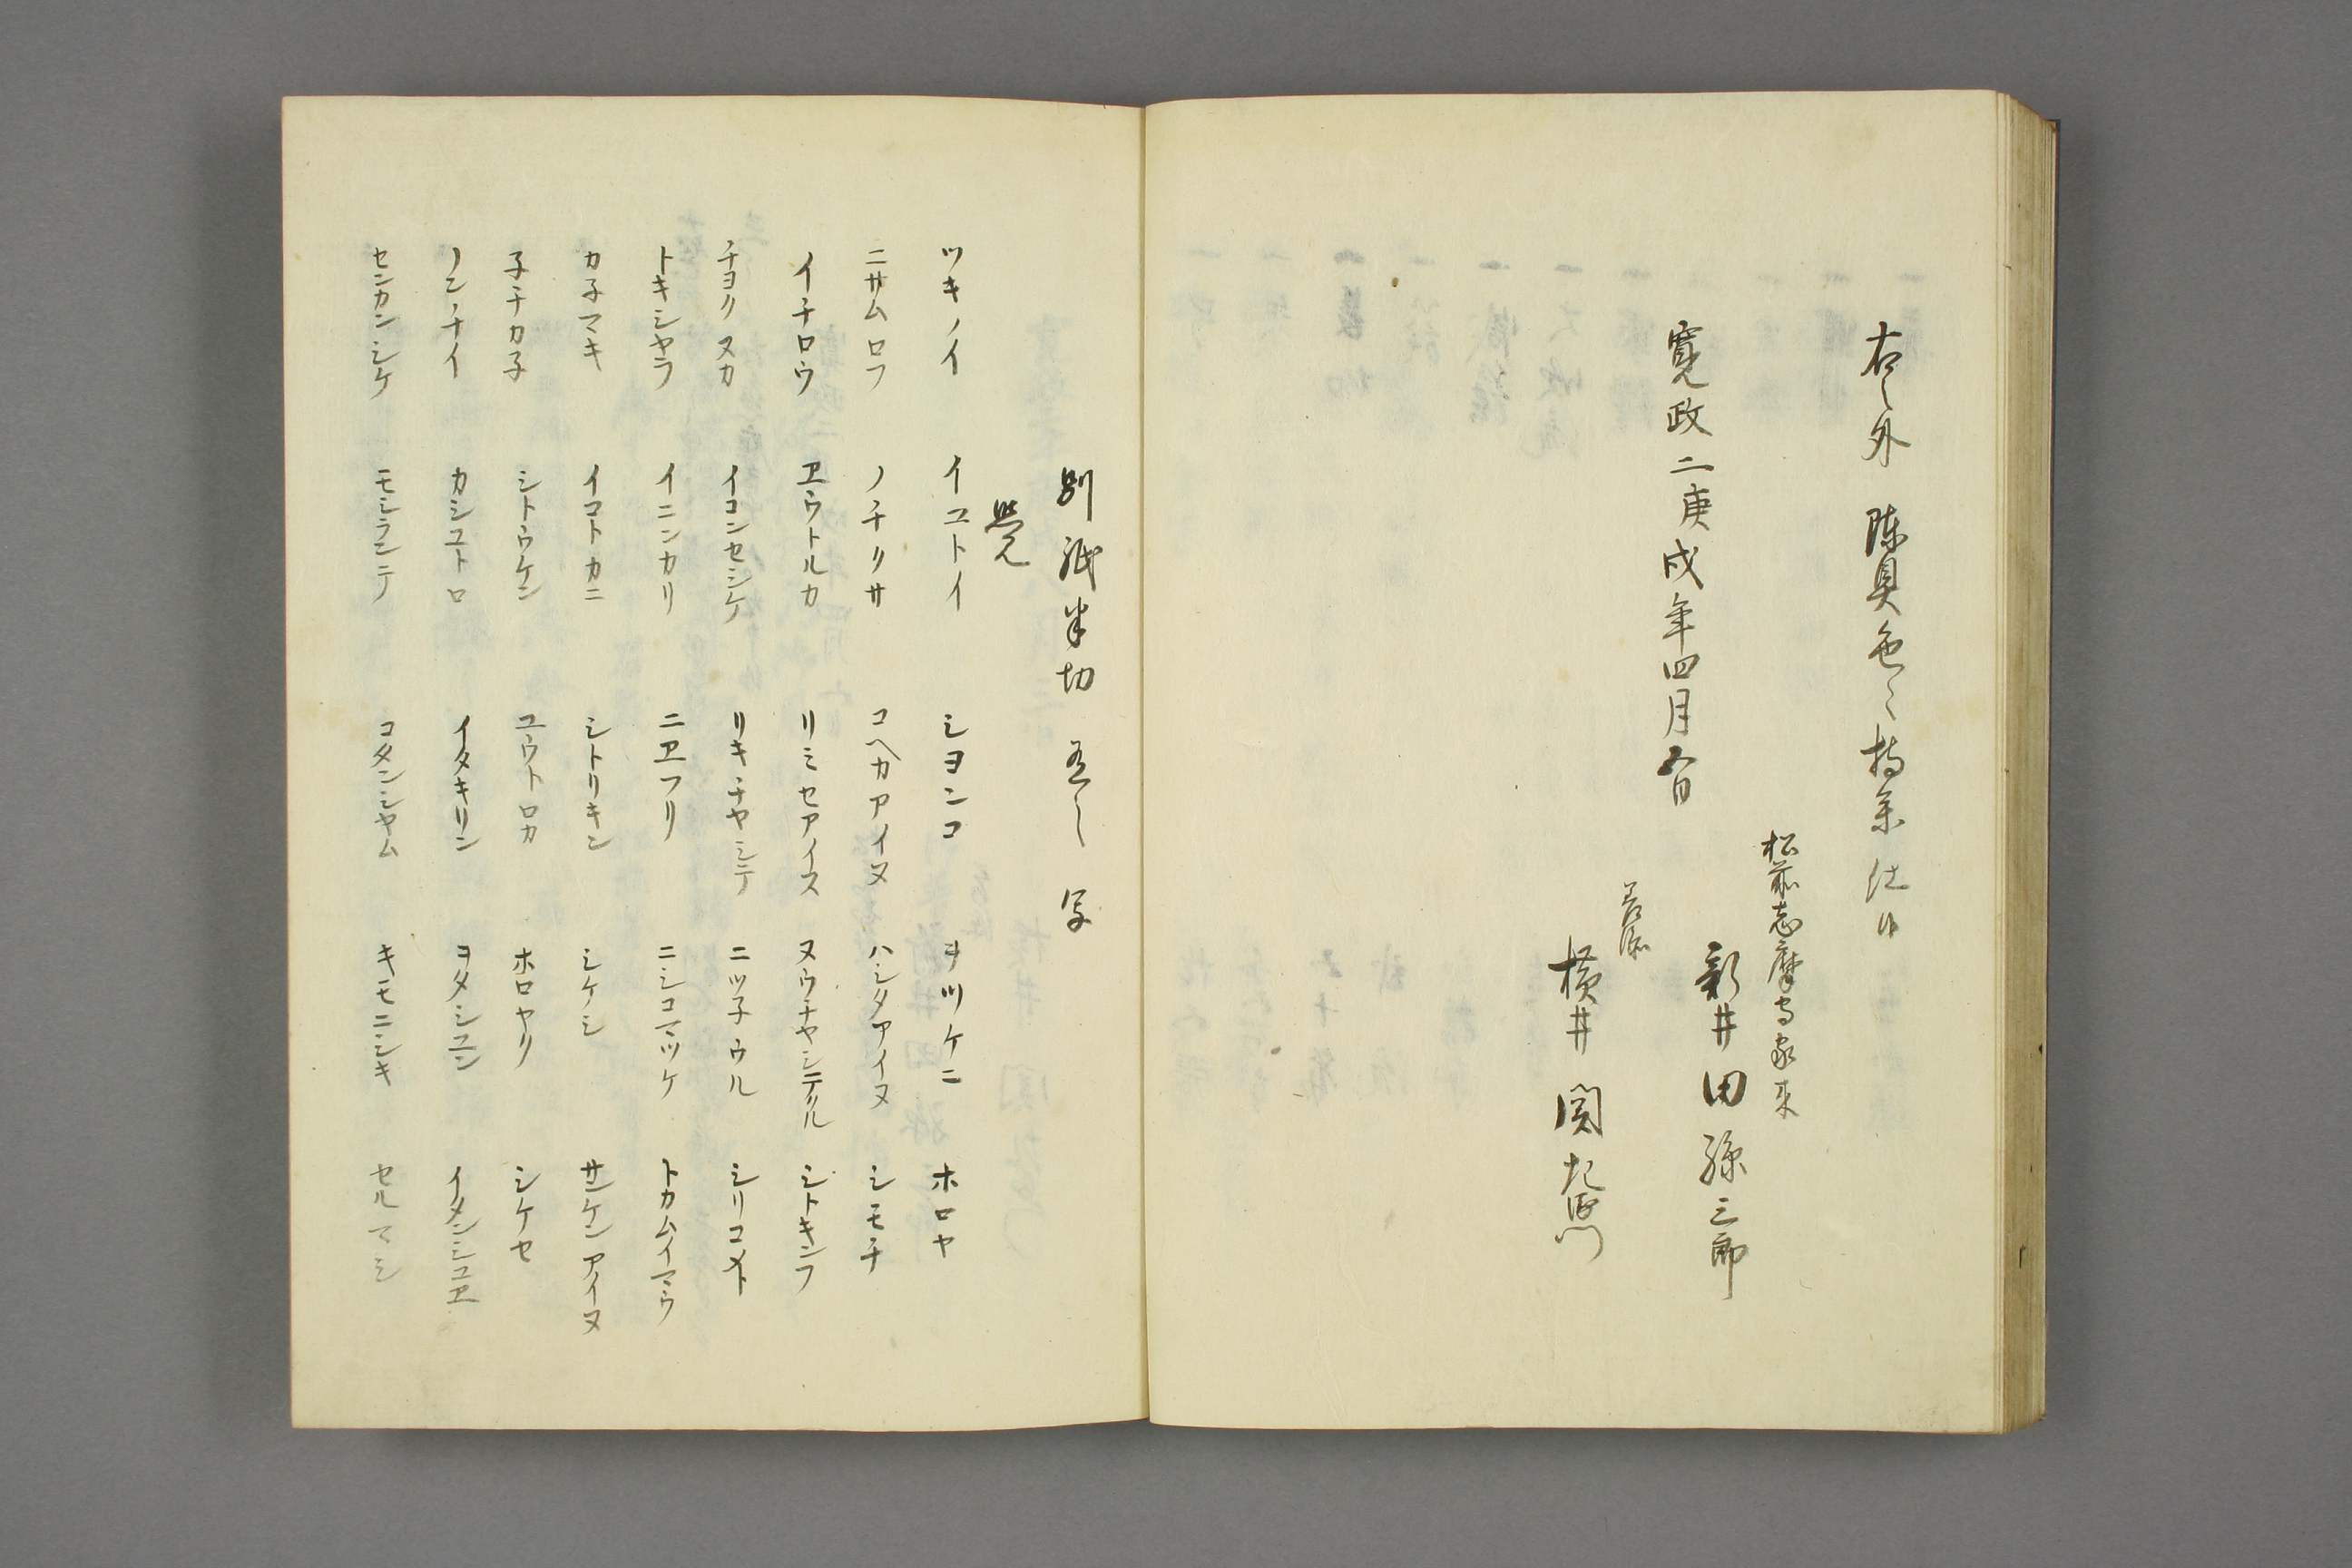 右之外陣具色々持参仕候
松前志摩守家来
新井田孫三郎
寛政二庚戌年四月
右添
横井関左衛門
別紙半切 写
覚
ツキノイ イコトイ シヨンコ ヲツケニ ホロヤ
ニサムロフ ノチクサ コヘカアイヌ ハシタアイヌ シモチ
イチロウ ヱウトルカ リミセアイヌ ヌウチヤシテクル シトキンフ
チヨクヌカ イコンセシケ リキチヤシテ ニツ子ウル シリコメト
トキシヤラ イニンカリ ニヱフリ ニシコマツケ トカムイマウ
カ子マキ イコトカニ シトリキン シケシ サンケンアイヌ
子チカ子 シトウケン ユウトロカ ホロヤリ シケセ
ノンノチイ カシユトロ イタキリン ヲタシユン イタンシユヱ
センカンシケ モシランテ コタンシヤム キモニシキ セルマシ